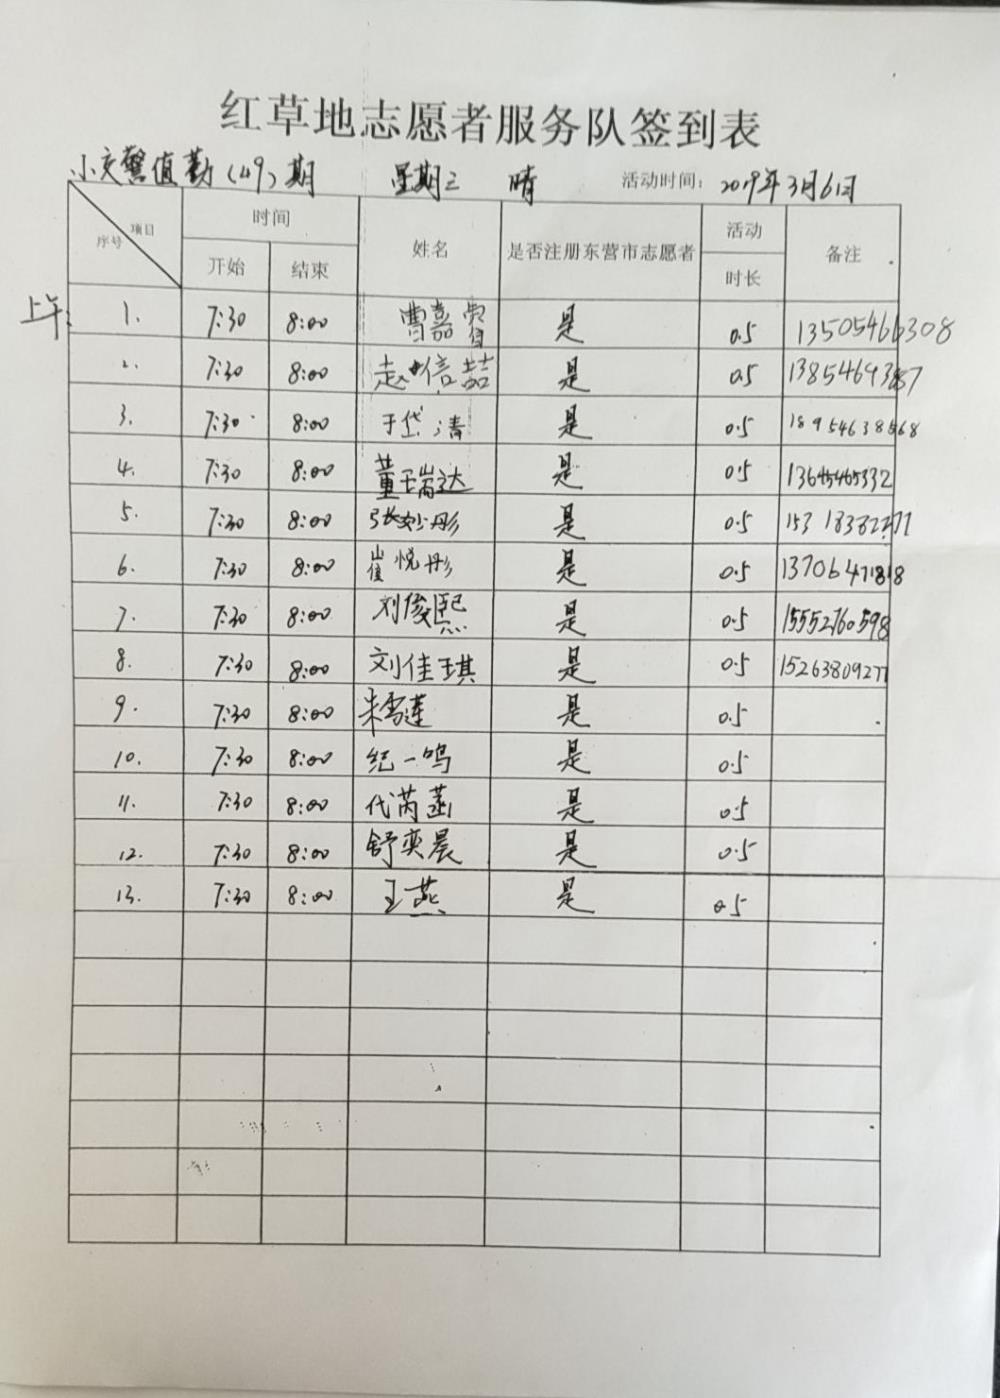 红草地志愿者服务队签到表
小交警值勤(49)期 星期三 晴 活动时间: 2019年3月6日
项目 序号 时间 姓名 是否注册东营市志愿者 活动 备注
开始 结束 时长
上午: 1. 7:30 8:00 曹嘉 是 0.5 13505466308
2. 7:30 8:00 赵 信喆 是 0.5
3. 7:30 8:00 于岱清 是 0.5 18954638568
4. 7:30 8:00 董瑞达 是 0.5 13645465332
5. 7:30 8:00 张妙彤 是 0.5
6. 7:30 8:00 崔悦彤 是 0.5 13706471818
7. 7:30 8:00 刘俊熙 是 0.5 15552760598
8. 7:30 8:00 刘佳琪 是 0.5 15263809277
9. 7:30 8:00 朱雪莲 是 0.5
10. 7:30 8:00 纪一鸣 是 0.5
11. 7:30 8:00 代芮菡 是 0.5
12. 7:30 8:00 舒奕晨 是 0.5
13. 7:30 8:00 王燕 是 0.5